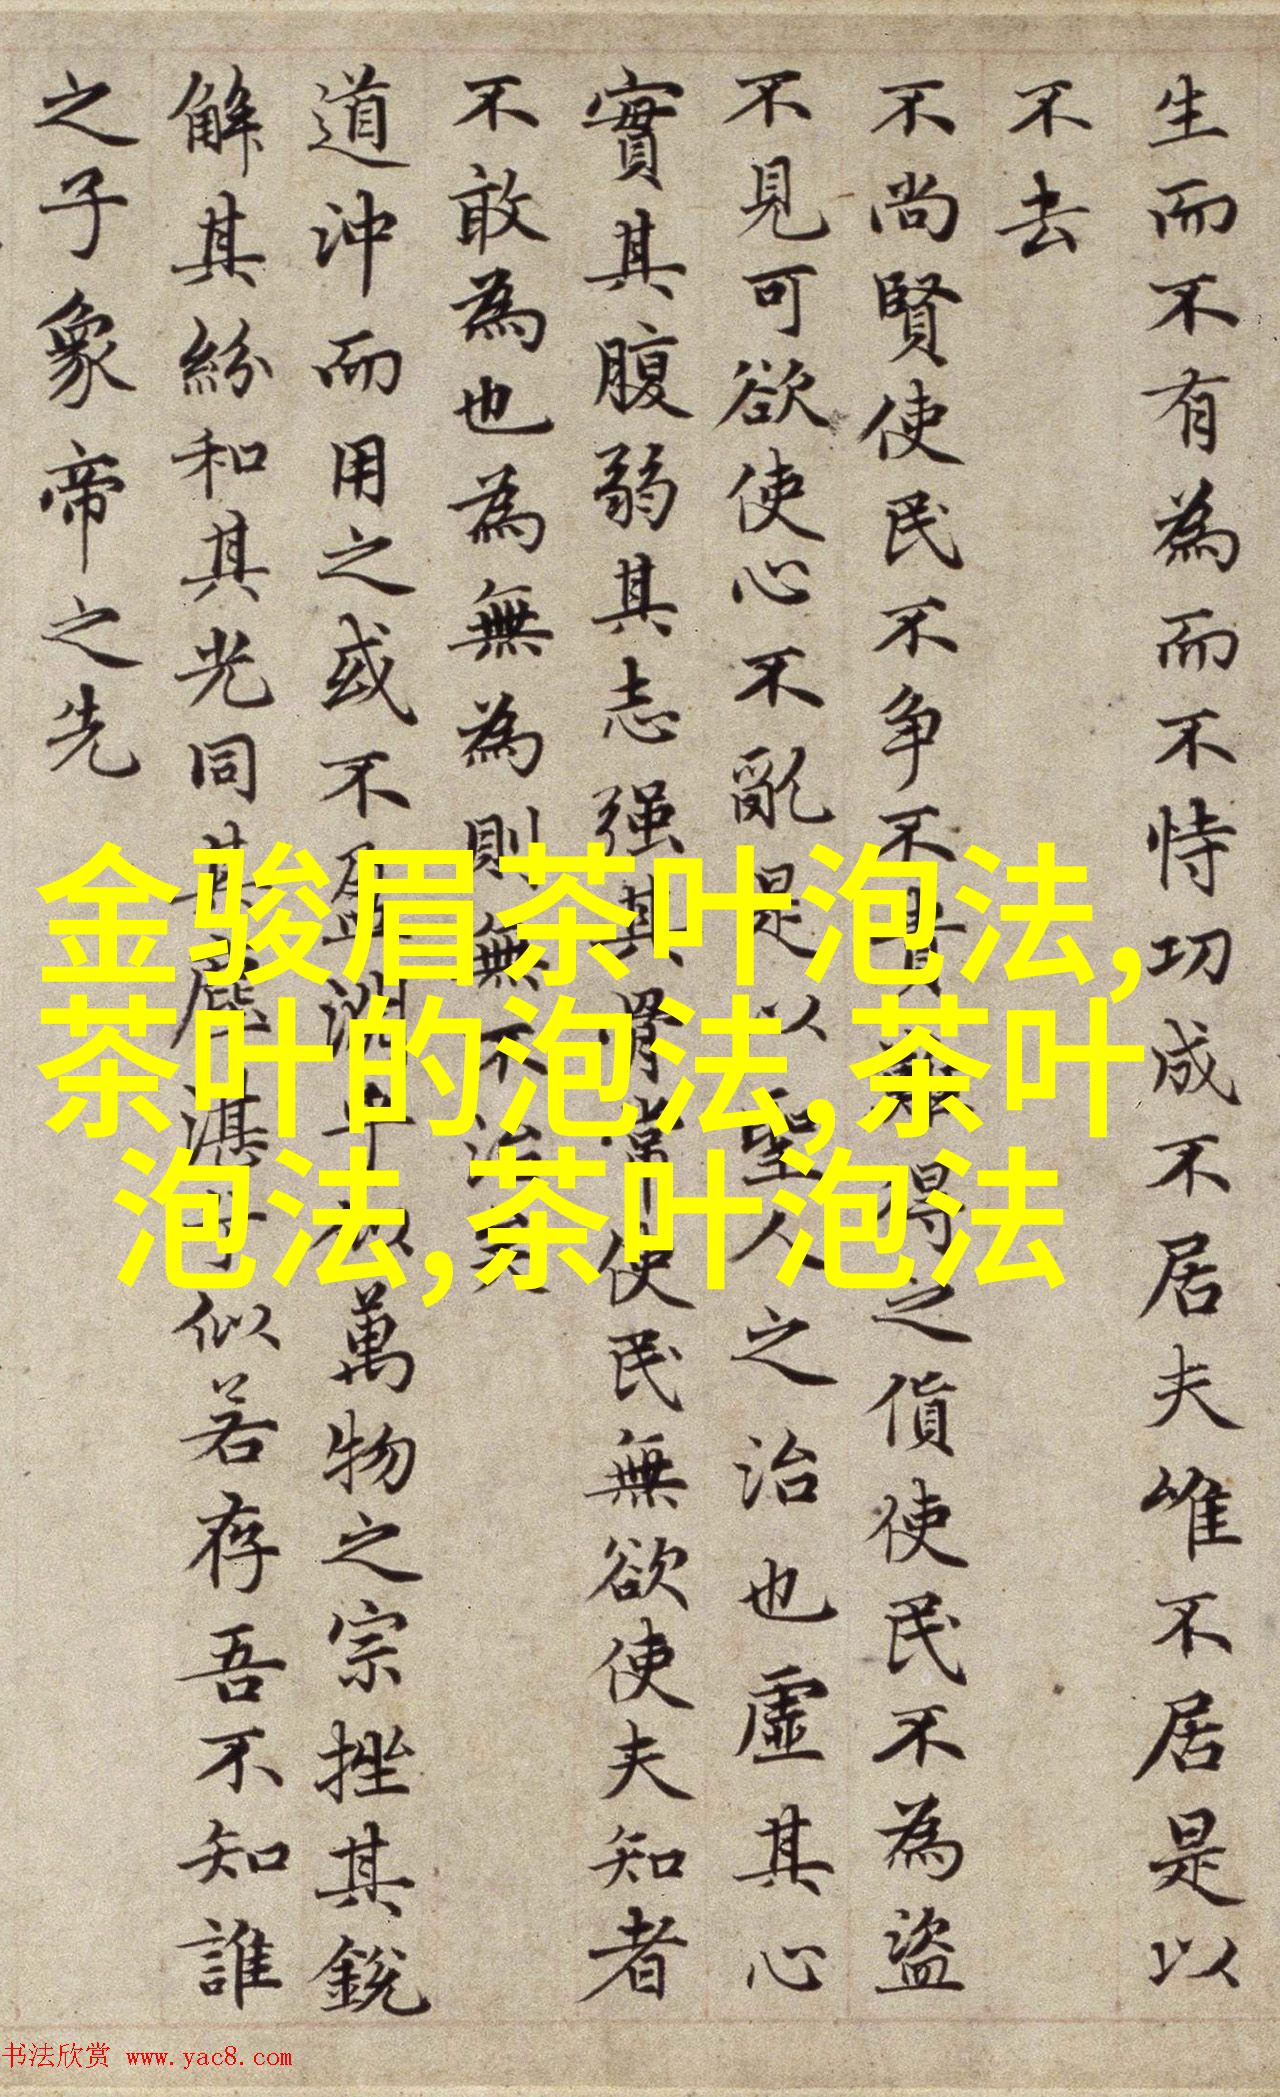 生而不有為而不恃功成不居夫唯不居是以
不去
不尚賢使民不争不貴難得之貨使民不為盜
不見可欲使心不亂是以聖人之治也虛其心
實其腹弱其志强其骨常使民無欲使夫知者
不敢為也為無為則無不治矣
道沖而用之或不盈淵乎似萬物之宗挫其銳
解其紛和其光同其塵湛乎似若存吾不知誰
之子象帝之先
金骏眉茶叶泡法,
茶叶的泡法,茶叶
泡法,茶叶泡法
书法欣赏 www.yac8.com